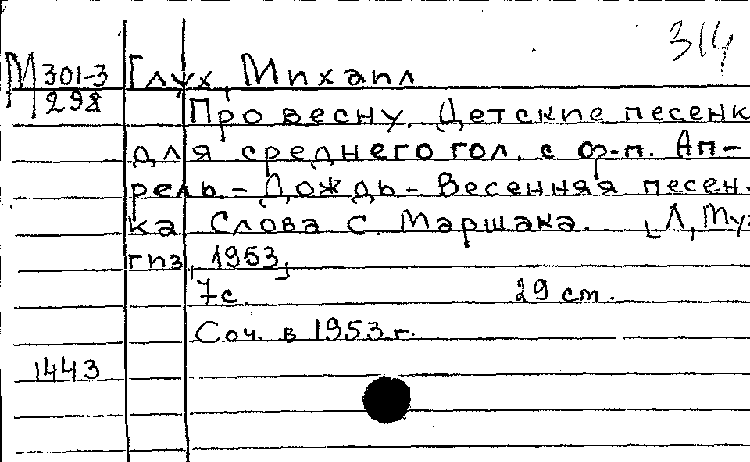 314
М 301-3 Глух, Михаил
298 Про весну. Детские песенк
для среднего гол. с ф-п. Ап-
рель. - Дождь - Весенняя песен-
ка Слова С. Маршака. [Л, Муз
гиз, 1953]
7 с. 29 cm.
Соч. в 1953 г.
1443